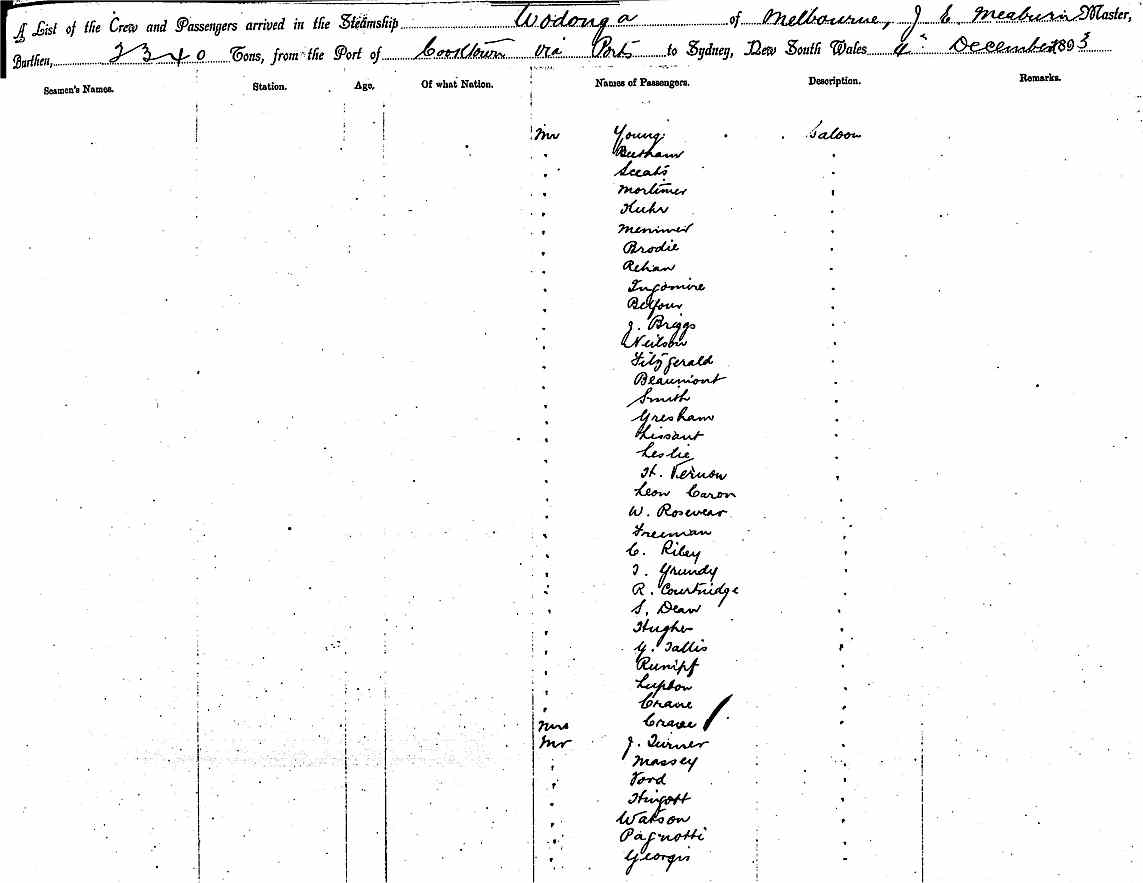 A List of the Crew and Passengers arrived in the Steamship Wodonga of Melbourne, J C Meaburn Master,
Burthen, 2340 Tons, from the Port of Cooktown via Ports to Sydney, New South Wales 4th December 1893
Seamen's Names. Station. Age. Of what Nation. Names of Passengers. Description. Remarks.
Mr Young Saloon
" "
" Sceats "
" Mortimer "
" Kuhr "
" "
" Brodie "
" Rehan "
" "
" Belfour "
" J. Briggs "
" Neilson "
" Fitzgerald "
" Beaumont "
" Smith "
" Gresham "
" Lissant "
" Leslie "
" H. Vernon "
" Leon Caron "
" W. Rosevear "
" Freeman "
" C. Riley "
" T. Grundy "
" R. Courtnidge "
" S. Dean "
" Hughes "
" G. Tallis "
" "
" Lupton "
" Crane "
Mrs Crane "
Mr J. Turner "
" Massey "
" Ford "
" "
" Watson "
" Pagnotti "
" Georgis "